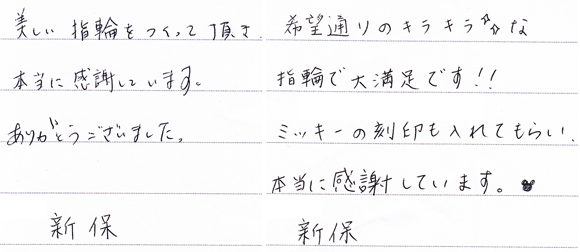 美しい指輪をつくって頂き
本当に感謝しています。
ありがとうございました。
新保
希望通りのキラキラな
指輪で大満足です!!
ミッキーの刻印も入れてもらい、
本当に感謝しています。
新保